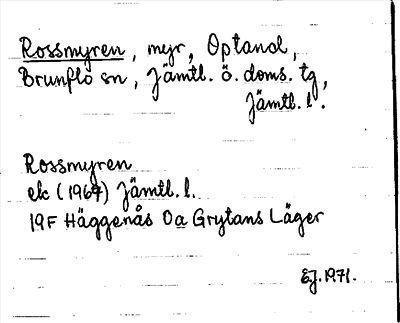 Rossmyren, myr, Optand,
Brunflo sn, Jämtl. ö. doms. tg,
Jämtl. l.
Rossmyren
ek (1967) Jämtl. l.
19F Häggenås 0a Grytans Läger
EJ. 1971.